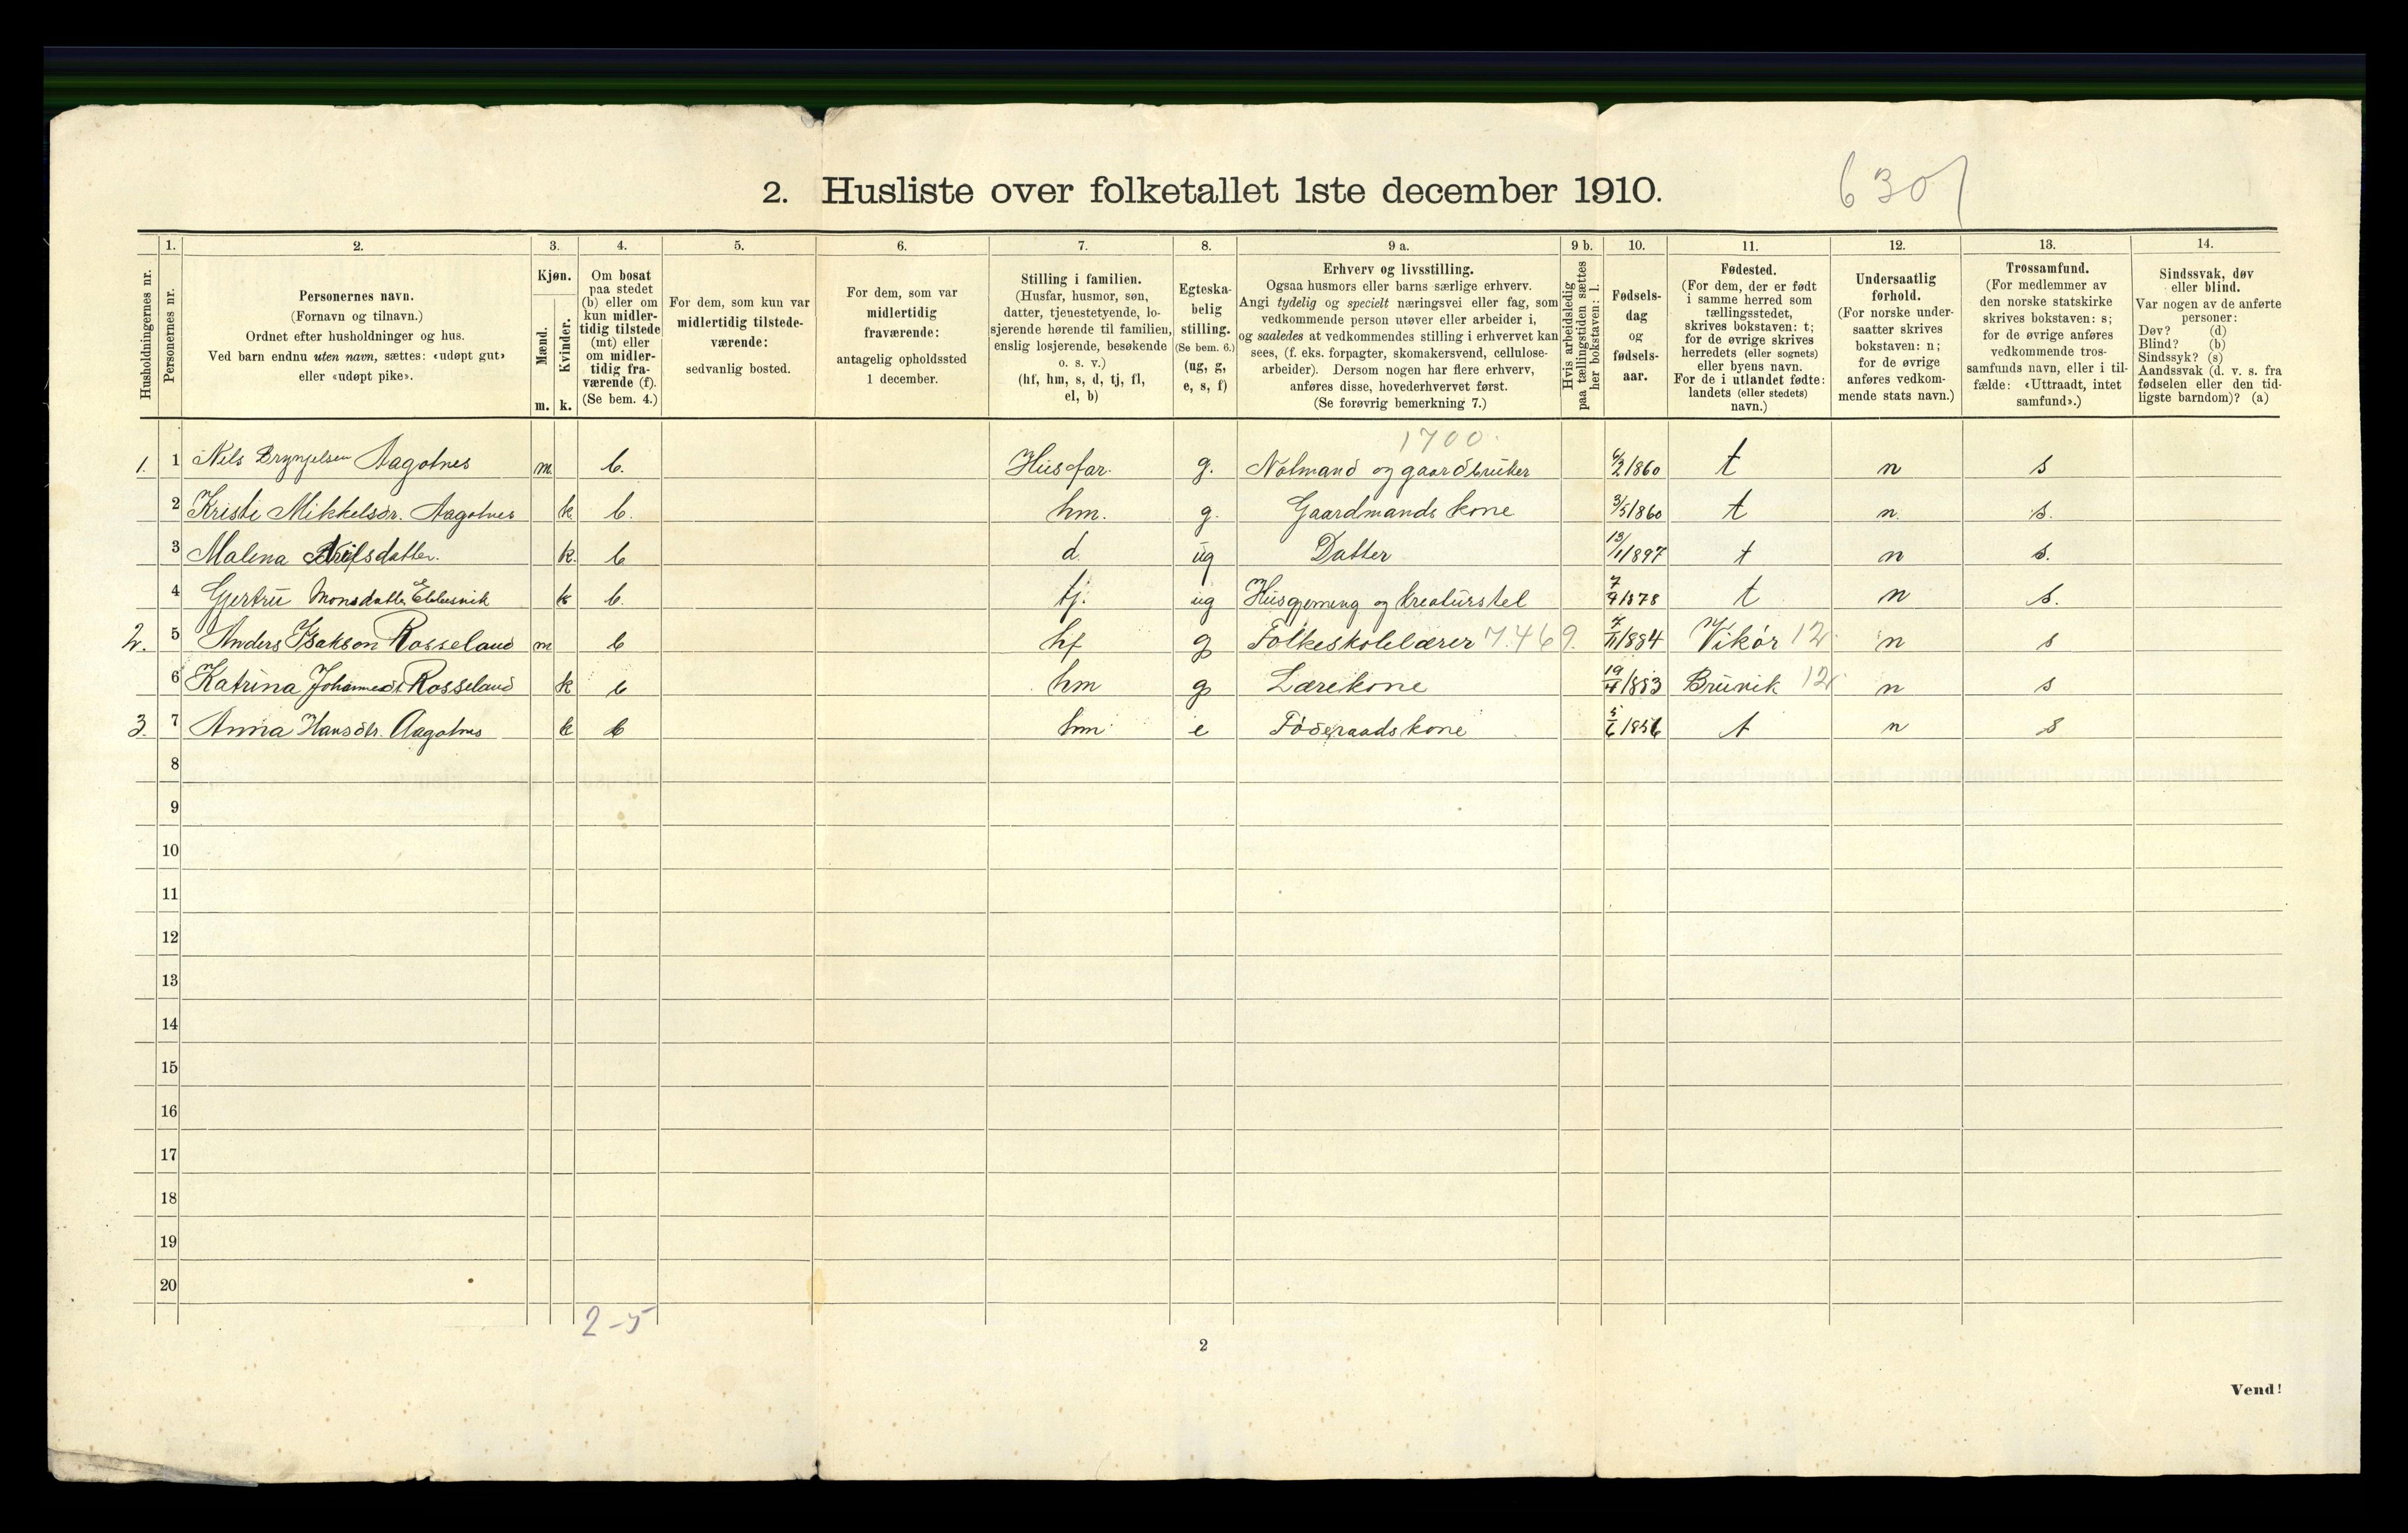 6301
2. Husliste over folketallet 1ste december 1910.
Husholdningernes nr.
1.
Personernes nr.
2.
Personernes navn.
(Fornavn og tilnavn.)
Ordnet efter husholdninger og hus.
Ved barn endnu uten navn, sættes: «udøpt gut»
eller «udøpt pike».
3.
Kjøn.
Mænd.
Kvinder.
m. k.
4.
Om bosat
paa stedet
(b) eller om
kun midler-
tidig tilstede
(mt) eller
om midler-
tidig fra-
værende (f).
(Se bem. 4.)
5.
For dem, som kun var
midlertidig tilstede-
værende:
sedvanlig bosted.
6.
For dem, som var
midlertidig
fraværende:
antagelig opholdssted
1 december.
7.
Stilling i familien.
(Husfar, husmor, søn,
datter, tjenestetyende, lo-
sjerende hørende til familien,
enslig losjerende, besøkende
o. s. v.)
(hf, hm, s, d, tj, fl,
el, b)
8.
Egteska-
belig
stilling.
(Se bem. 6.)
(ug, g,
e, s, f)
9 a.
Erhverv og livsstilling.
Ogsaa husmors eller barns særlige erhverv.
Angi tydelig og specielt næringsvei eller fag, som
vedkommende person utøver eller arbeider i,
og saaledes at vedkommendes stilling i erhvervet kan
sees, (f. eks. forpagter, skomakersvend, cellulose-
arbeider). Dersom nogen har flere erhverv,
anføres disse, hovederhvervet først.
(Se forøvrig bemerkning 7.)
9 b.
Hvis arbeidsledig
paa tællingstiden sættes
her bokstaven: l.
10.
Fødsels-
dag
og
fødsels-
aar.
11.
Fødested.
(For dem, der er født
i samme herred som
tællingsstedet,
skrives bokstaven: t;
for de øvrige skrives
herredets (eller sognets)
eller byens navn.
For de i utlandet fødte:
landets (eller stedets)
navn.)
12.
Undersaatlig
forhold.
(For norske under-
saatter skrives
bokstaven: n;
for de øvrige
anføres vedkom-
mende stats navn.)
13.
Trossamfund.
(For medlemmer av
den norske statskirke
skrives bokstaven: s;
for de øvrige anføres
vedkommende tros-
samfunds navn, eller i til-
fælde: «Uttraadt, intet
samfund».)
14.
Sindssvak, døv
eller blind.
Var nogen av de anførte
personer:
Døv? (d)
Blind? (b)
Sindssyk? (s)
Aandssvak (d. v. s. fra
fødselen eller den tid-
ligste barndom)? (a)
1700.
1. 1 Nils Brynjelsen Aagotnes m. b. Husfar. g. Notmand og gaardbruker 6/2 1860 t n s
2 Kristi Mikkelsdr. Aagotnes k. b. hm. g. Gaardmands kone 3/5 1860 t n. s.
3 Malena Nilsdatter. k. b d. ug Datter 13/1 1897 t n s.
4 Gjertru Monsdatter Ebbesvik k b. tj. ug Husgjerning og kreaturstel 7/9 1878 t n s.
2. 5 Anders Isakson Rosseland m b hf g Folkeskolelærer 7.469. 7/11 1884 Vikør 12. n s
6 Katrina Johannesdt. Rosseland k b hm g Lærekone 19/4 1883 Bruvik 12. n s
3. 7 Anna Hansdtr. Aagotnes k b hm e Føderaadskone 5/6 1856 t n s
8
9
10
11
12
13
14
15
16
17
18
19
20
2-5
2
Vend!